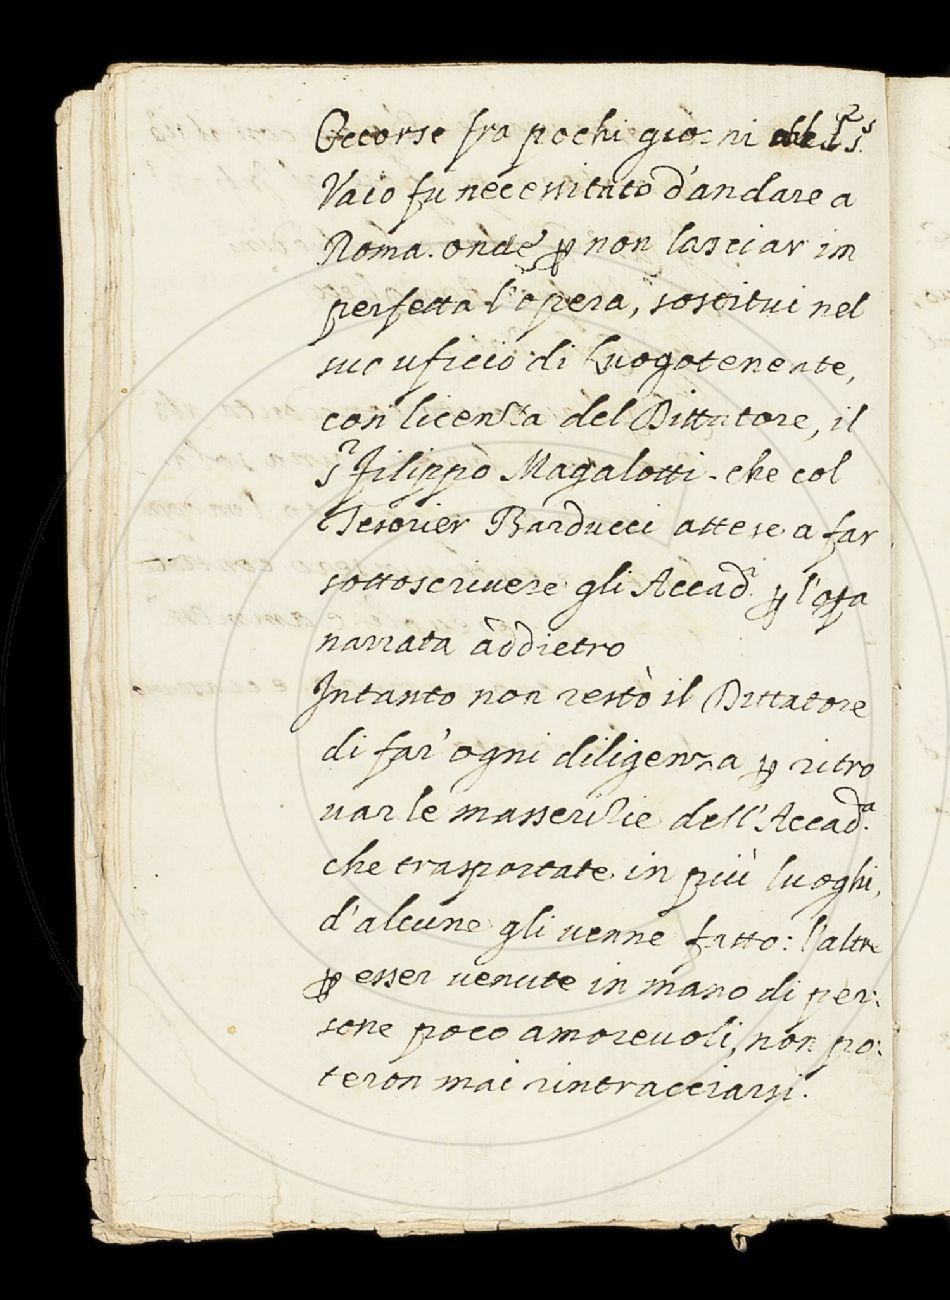 Occorse fra pochi giorni che il Sr.
Vaio fu necessitato d'andare a
Roma. onde p non lasciar im
perfetta l'opera, sostitui nel
suo uficio di Luogotenente,
con licenza del Dittatore, il
Sr Filippo Magalotti. che col
Tesorier Barducci attese a far
sottoscrivere gli Accad.i p l'opa
narrata addietro
Intanto non restò il Dittatore
di far' ogni diligenza p ritro
uar le masserizie dell'Accad.a
che trasportate in più luoghi,
d'alcune gli uenne fatto: l'altre
p esser uenute in mano di per:
sone poco amoreuoli, non po:
teron mai rintracciarsi.